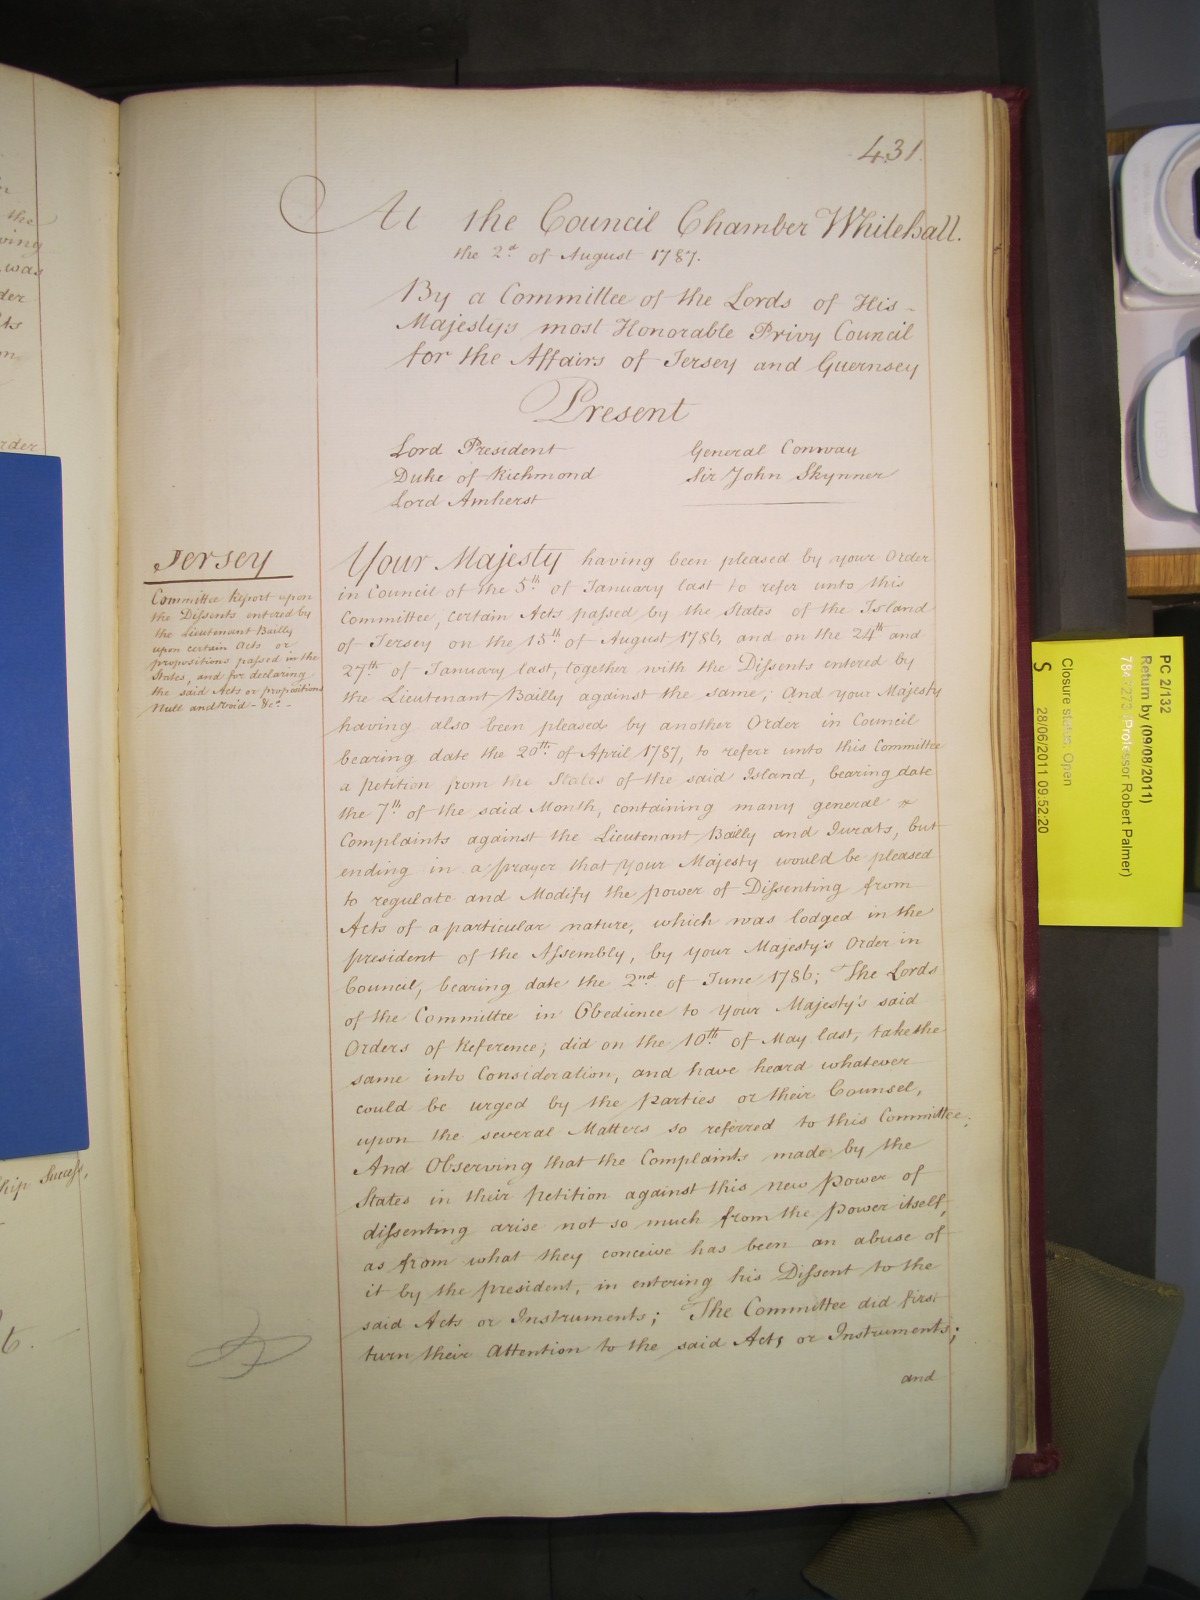 431.
At the Council Chamber Whitehall.
the 2d. of August 1787.
By a Committee of the Lords of His
Majestys most Honorable Privy Council
for the Affairs of Jersey and Guernsey
Present
Lord President
Duke of Richmond
Lord Amherst
General Conway
Sir John Skynner
Jersey
Committee Report upon
the Dissents entered by
the Lieutenant Bailly
upon certain Acts or
propositions passed in the
States, and for declaring
the said Acts or propositions
Null and Void - &c. -
Your Majesty having been pleased by your Order
in Council of the 5th of January last to refer unto this
Committee, certain Acts passed by the States of the Island
of Jersey on the 15th of August 1786, and on the 24th and
27th of January last, together with the Dissents entered by
the Lieutenant Bailly against the same; And your Majesty
having also been pleased by another Order in Council
bearing date the 20th of April 1787, to referr unto this Committee
a petition from the States of the said Island, bearing date
the 7th of the said Month, containing many general
Complaints against the Lieutenant Bailly and Jurats, but
ending in a prayer that your Majesty would be pleased
to regulate and Modify the power of Dissenting from
Acts of a particular nature, which was lodged in the
president of the Assembly, by your Majesty's Order in
Council, bearing date the 2nd of June 1786; The Lords
of the Committee in Obedience to your Majesty's said
Orders of Reference; did on the 10th of May last, take the
same into Consideration, and have heard whatever
could be urged by the Parties or their Counsel,
upon the several Matters so referred to this Committee;
And Observing that the Complaints made by the
States in their petition against this new power of
dissenting arise not so much from the power itself,
as from what they conceive has been an abuse of
it by the president, in entering his Dissent to the
said Acts or Instruments; The Committee did first
turn their Attention to the said Acts or Instruments;
and
the
ving
was
der
rder
hip Success,
PC 2/132
Return by (09/08/2011)
(Professor Robert Palmer)
Closure status: Open
S
28/06/2011 09:52:20